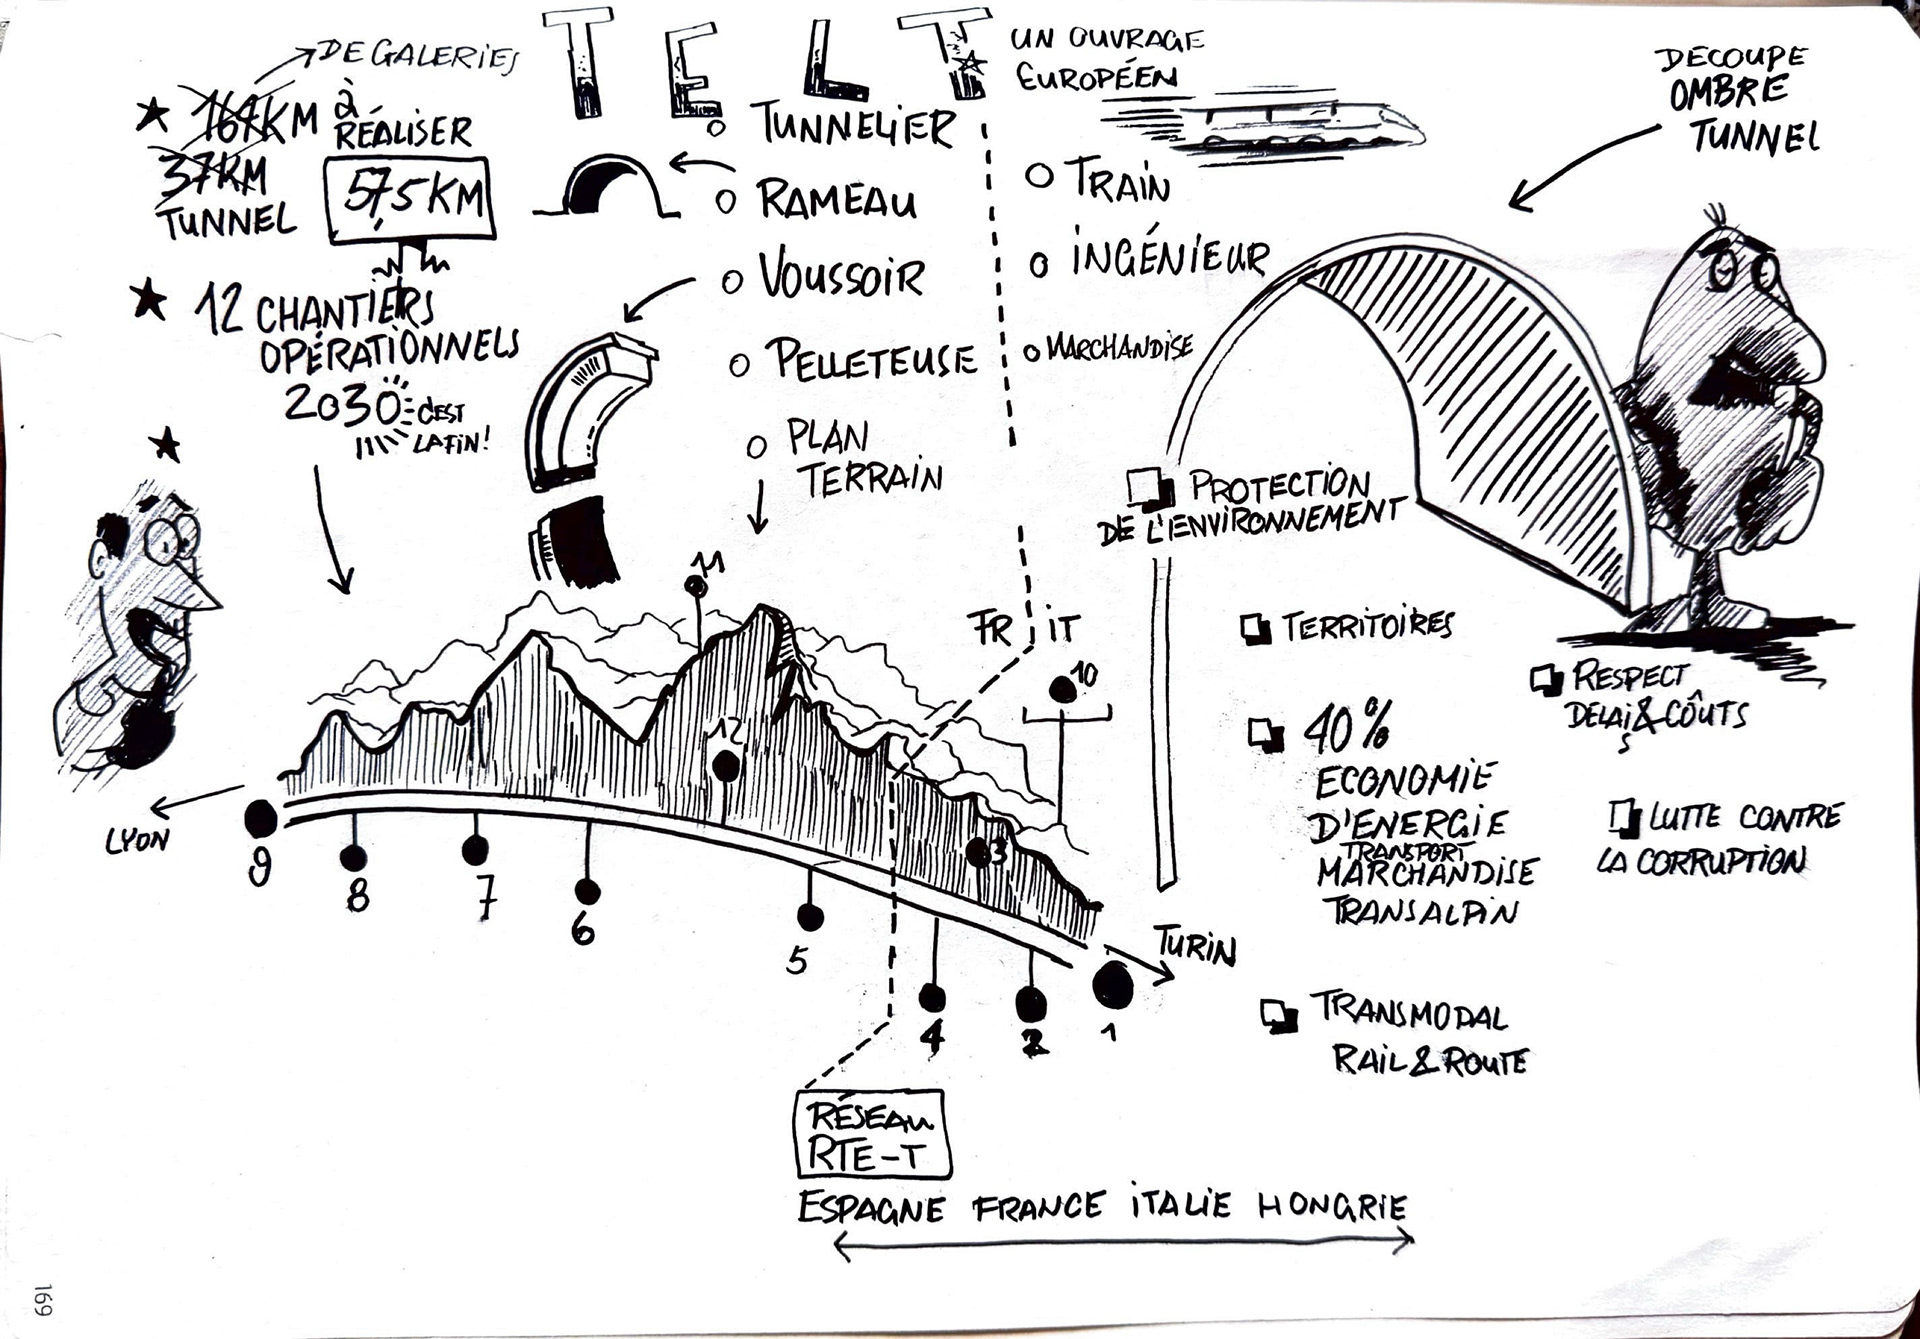 TELT
UN OUVRAGE
EUROPÉEN
DE GALERIES
164KM à
RÉALISER
37KM
TUNNEL
57,5 KM
12 CHANTIERS
OPÉRATIONNELS
2030 C'EST
LA FIN!
TUNNELIER
RAMEAU
VOUSSOIR
PELLETEUSE
PLAN
TERRAIN
TRAIN
INGÉNIEUR
MARCHANDISE
DECOUPE
OMBRE
TUNNEL
PROTECTION
DE L'ENVIRONNEMENT
TERRITOIRES
40%
ECONOMIE
D'ENERGIE
TRANSPORT
MARCHANDISE
TRANSALPIN
TRANSMODAL
RAIL & ROUTE
RESPECT
DELAI & COÛTS
S
LUTTE CONTRE
LA CORRUPTION
FR IT
11
10
12
3
LYON
9
8
7
6
5
4
2
1
TURIN
RÉSEAU
RTE-T
ESPAGNE FRANCE ITALIE HONGRIE
169